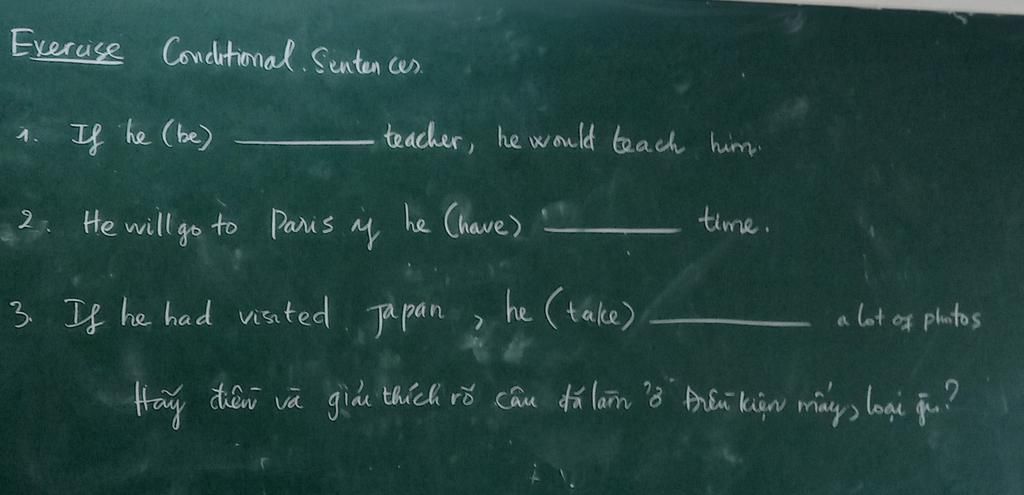 Exercise Conditional Sentences.
1. If he (be) ________ teacher, he would teach him.
2. He will go to Paris if he (have) ________ time.
3. If he had visited Japan, he (take) ________ a lot of photos
Hãy điền và giải thích rõ câu đã làm ở điều kiện mấy, loại gì?